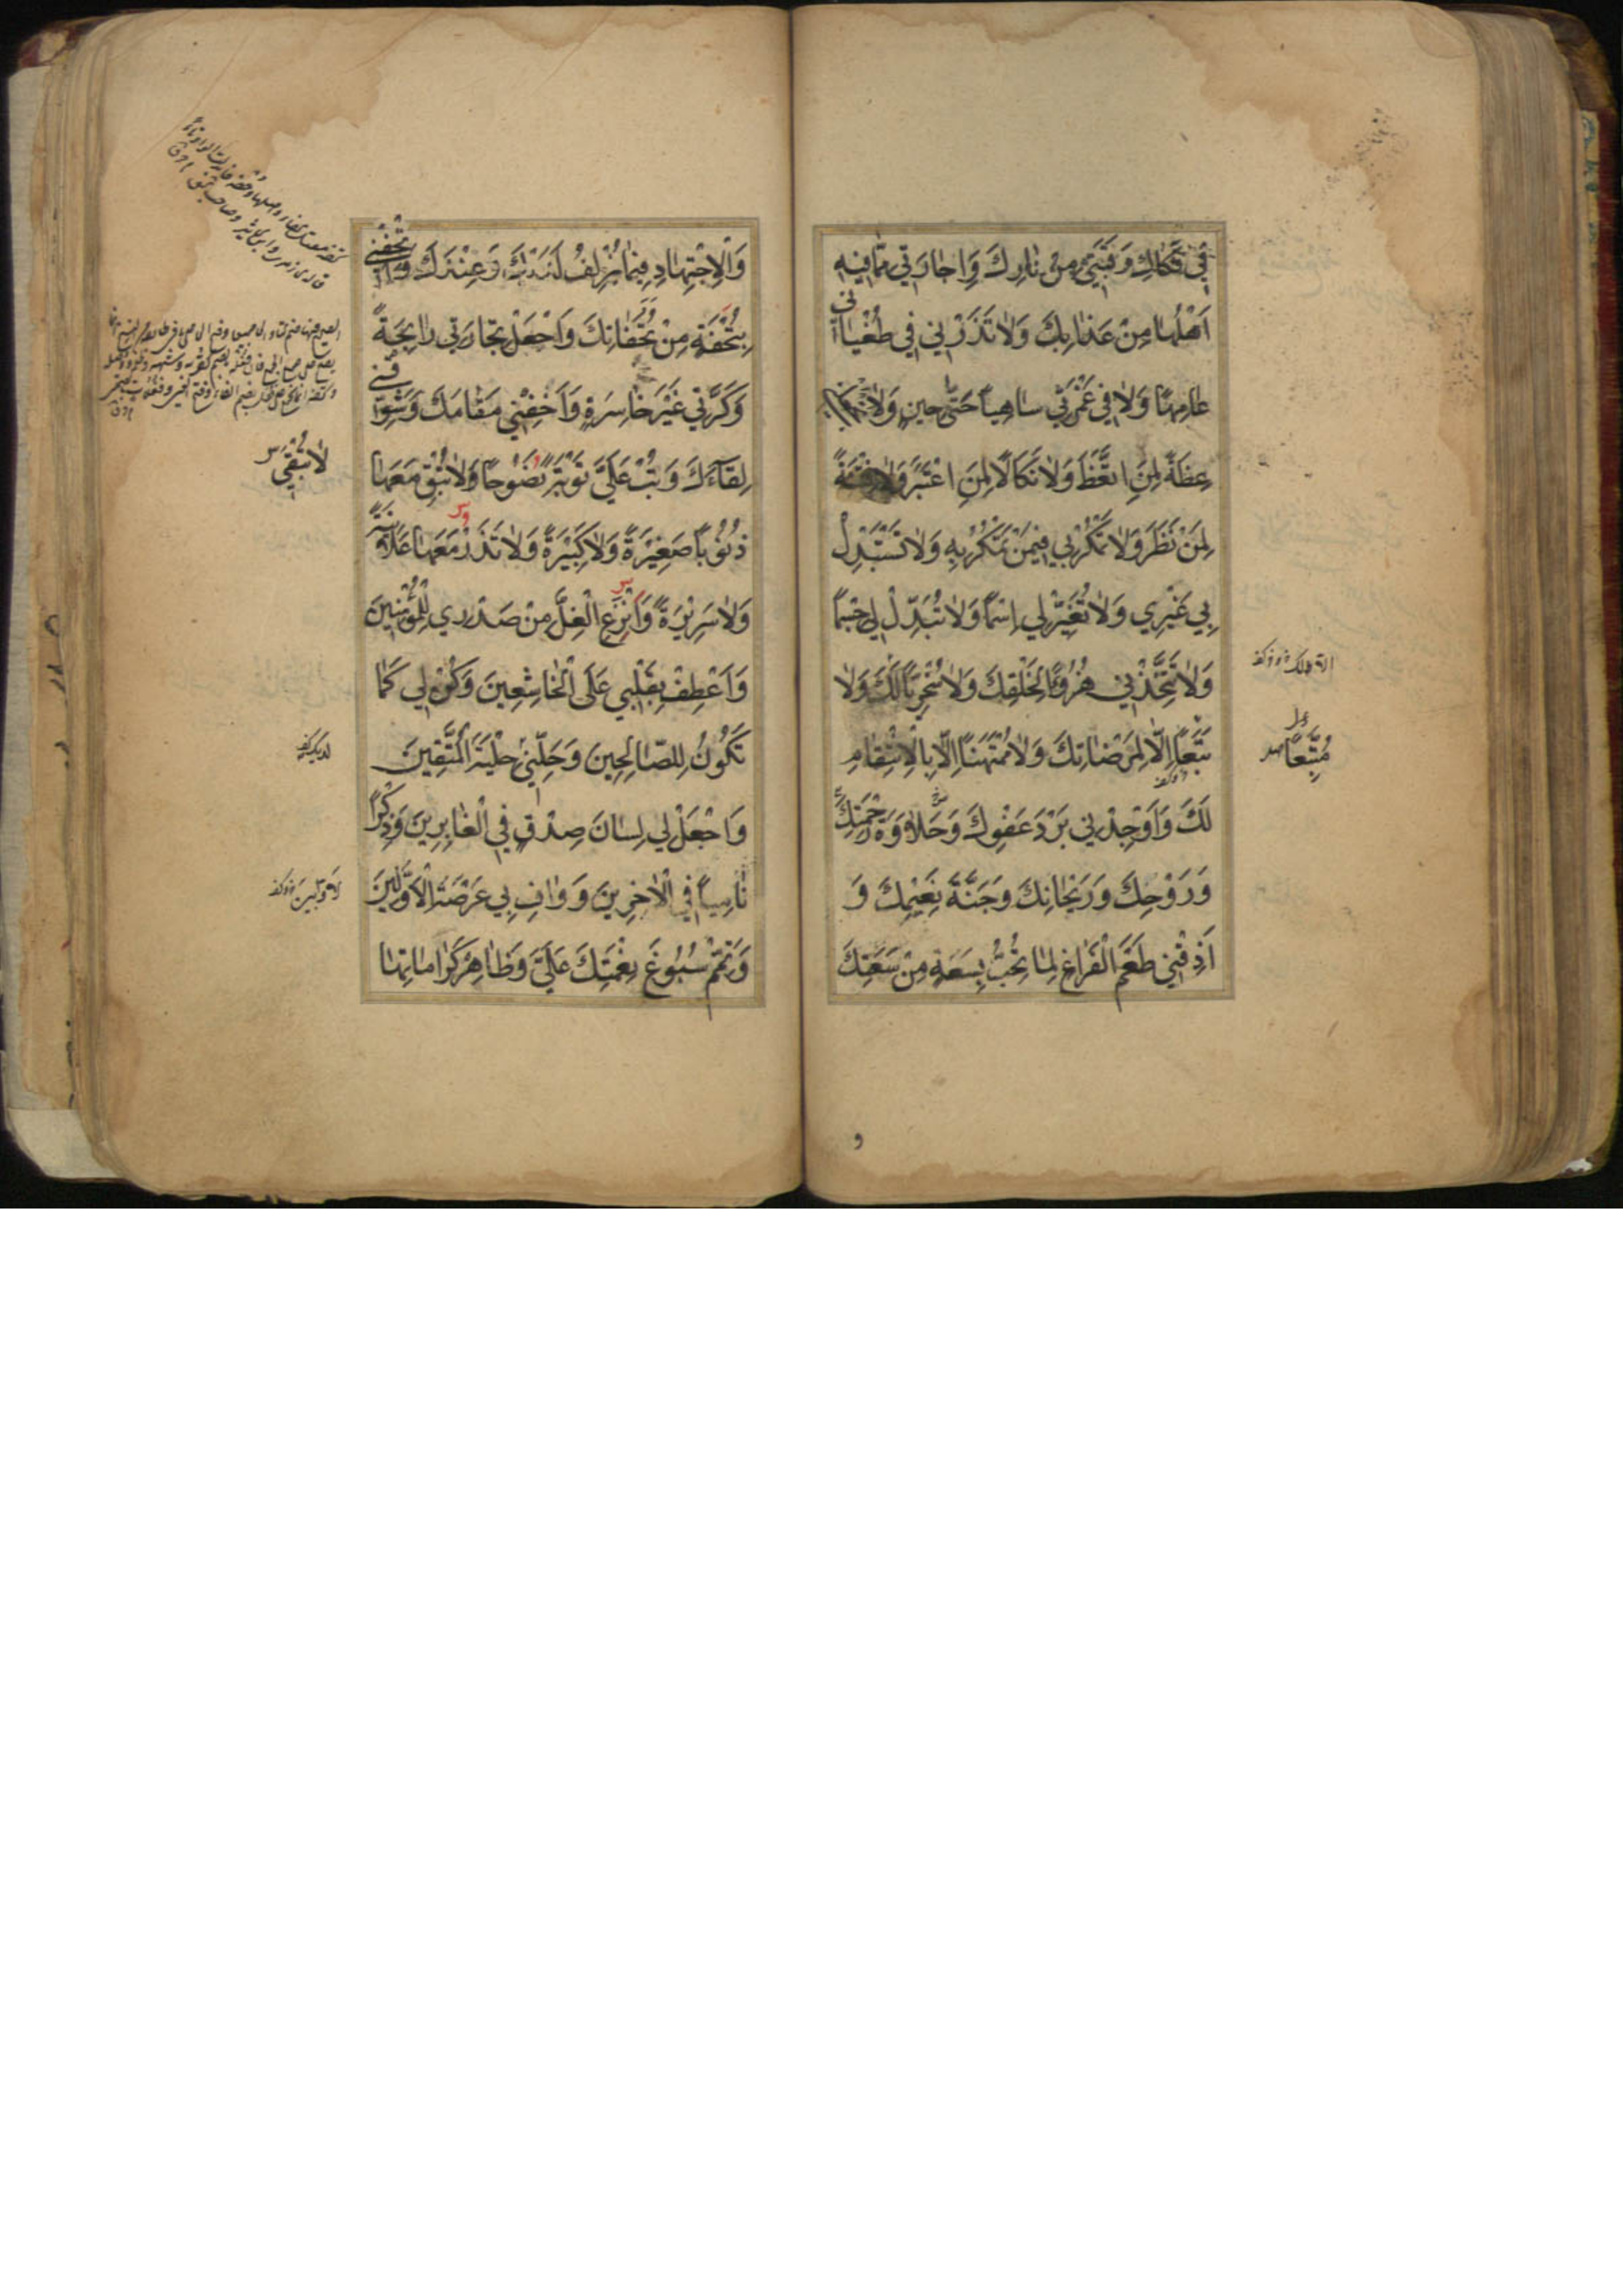 فِي فَكَاكِ رَقَبَتِي مِنْ نَارِكَ وَاِجَارَتِي مِمَّا فِيهِ
اَهْلُهَا مِنْ عَذَابِكَ وَلَا تَذَرْنِي فِي طُغْيَانِي
عَامِهًا وَلَا فِي غَمْرَتِي سَاهِياً حَتَّى حِينٍ وَلَا
عِظَةً لِمَنِ اتَّعَظَ وَلَا نَكَالًا لِمَنِ اعْتَبَرَ وَلَا فِتْنَةً
لِمَنْ نَظَرَ وَلَا تَمْكُرْ بِي فِيمَنْ تَمْكُرُ بِهِ وَلَا تَسْتَبْدِلْ
بِي غَيْرِي وَلَا تُغَيِّرْ لِي اِسْمًا وَلَا تُبَدِّلْ لِي جِسْمًا
وَلَا تَتَّخِذْنِي هُزُوًا لِخَلْقِكَ وَلَا سُخْرِيًّا لَكَ وَلَا
تَبَعًا اِلَّا لِمَرْضَاتِكَ وَلَا مُمْتَهَنًا اِلَّا بِالْاِنْتِقَامِ
مُتَّبَعًا
لَكَ وَاَوْجِدْنِي بَرْدَ عَفْوِكَ وَحَلَاوَةَ رَحْمَتِكَ
وَرَوْحِكَ وَرَيْحَانِكَ وَجَنَّةَ نَعِيْمِكَ وَ
اَذِقْنِي طَعْمَ الْفَرَاغِ لِمَا تُحِبُّ بِسَعَةٍ مِنْ سَعَتِكَ
و
وَالْاِجْتِهَادِ فِيمَا يُزْلِفُ لَدَيْكَ وَعِنْدَكَ وَاَتْحِفْنِي
بِتُحْفَةٍ مِنْ تُحَفَاتِكَ وَاجْعَلْ تِجَارَتِي رَابِحَةً
وَكَرَّتِي غَيْرَ خَاسِرَةٍ وَاَخِفْنِي مَقَامَكَ وَشَوِّقْنِي
لِقَآءَكَ وَتُبْ عَلَيَّ تَوْبَةً نَصُوحًا وَلَا تُبْقِ مَعَهَا
لَا تُبْقِي
ذُنُوبًا صَغِيْرَةً وَلَا كَبِيْرَةً وَلَا تَذَرْ مَعَهَا عَلَانِيَةً
وَلَا سَرِيْرَةً وَانْزِعِ الْغِلَّ مِنْ صَدْرِي لِلْمُؤْمِنِينَ
وَاَعْطِفْ بِقَلْبِي عَلَى الْخَاشِعِينَ وَكُنْ لِي كَمَا
تَكُونُ لِلصَّالِحِينَ وَحَلِّنِي حِلْيَةَ الْمُتَّقِينَ
وَاجْعَلْ لِي لِسَانَ صِدْقٍ فِي الْغَابِرِينَ وَذِكْرًا
نَامِيًا فِي الْاٰخِرِينَ وَوَافِ بِي عَرْصَةَ الْاَوَّلِينَ
وَتَمِّمْ سُبُوغَ نِعْمَتِكَ عَلَيَّ وَظَاهِرْ كَرَامَاتِهَا